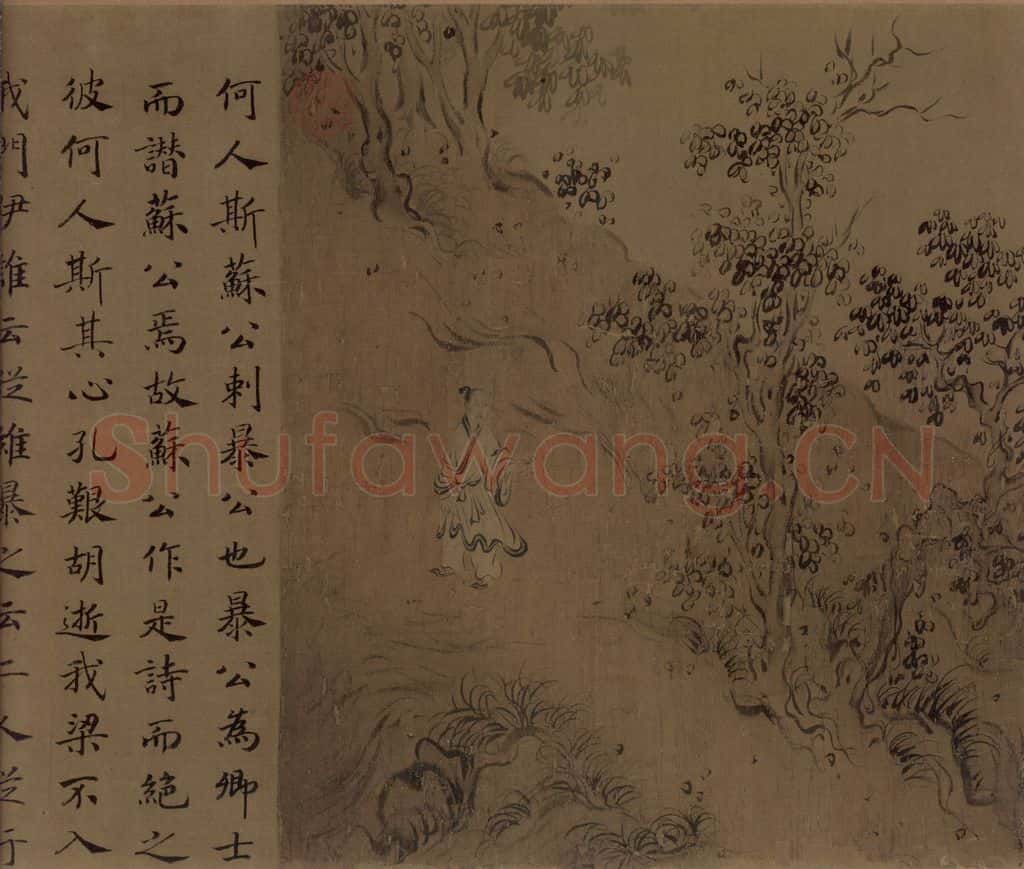 何人斯蘇公刺暴公也暴公為卿士
而譖蘇公焉故蘇公作是詩而絕之
彼何人斯其心孔艱胡逝我梁不入
我門伊誰云從維暴之云二人從行
Shufawang.CN